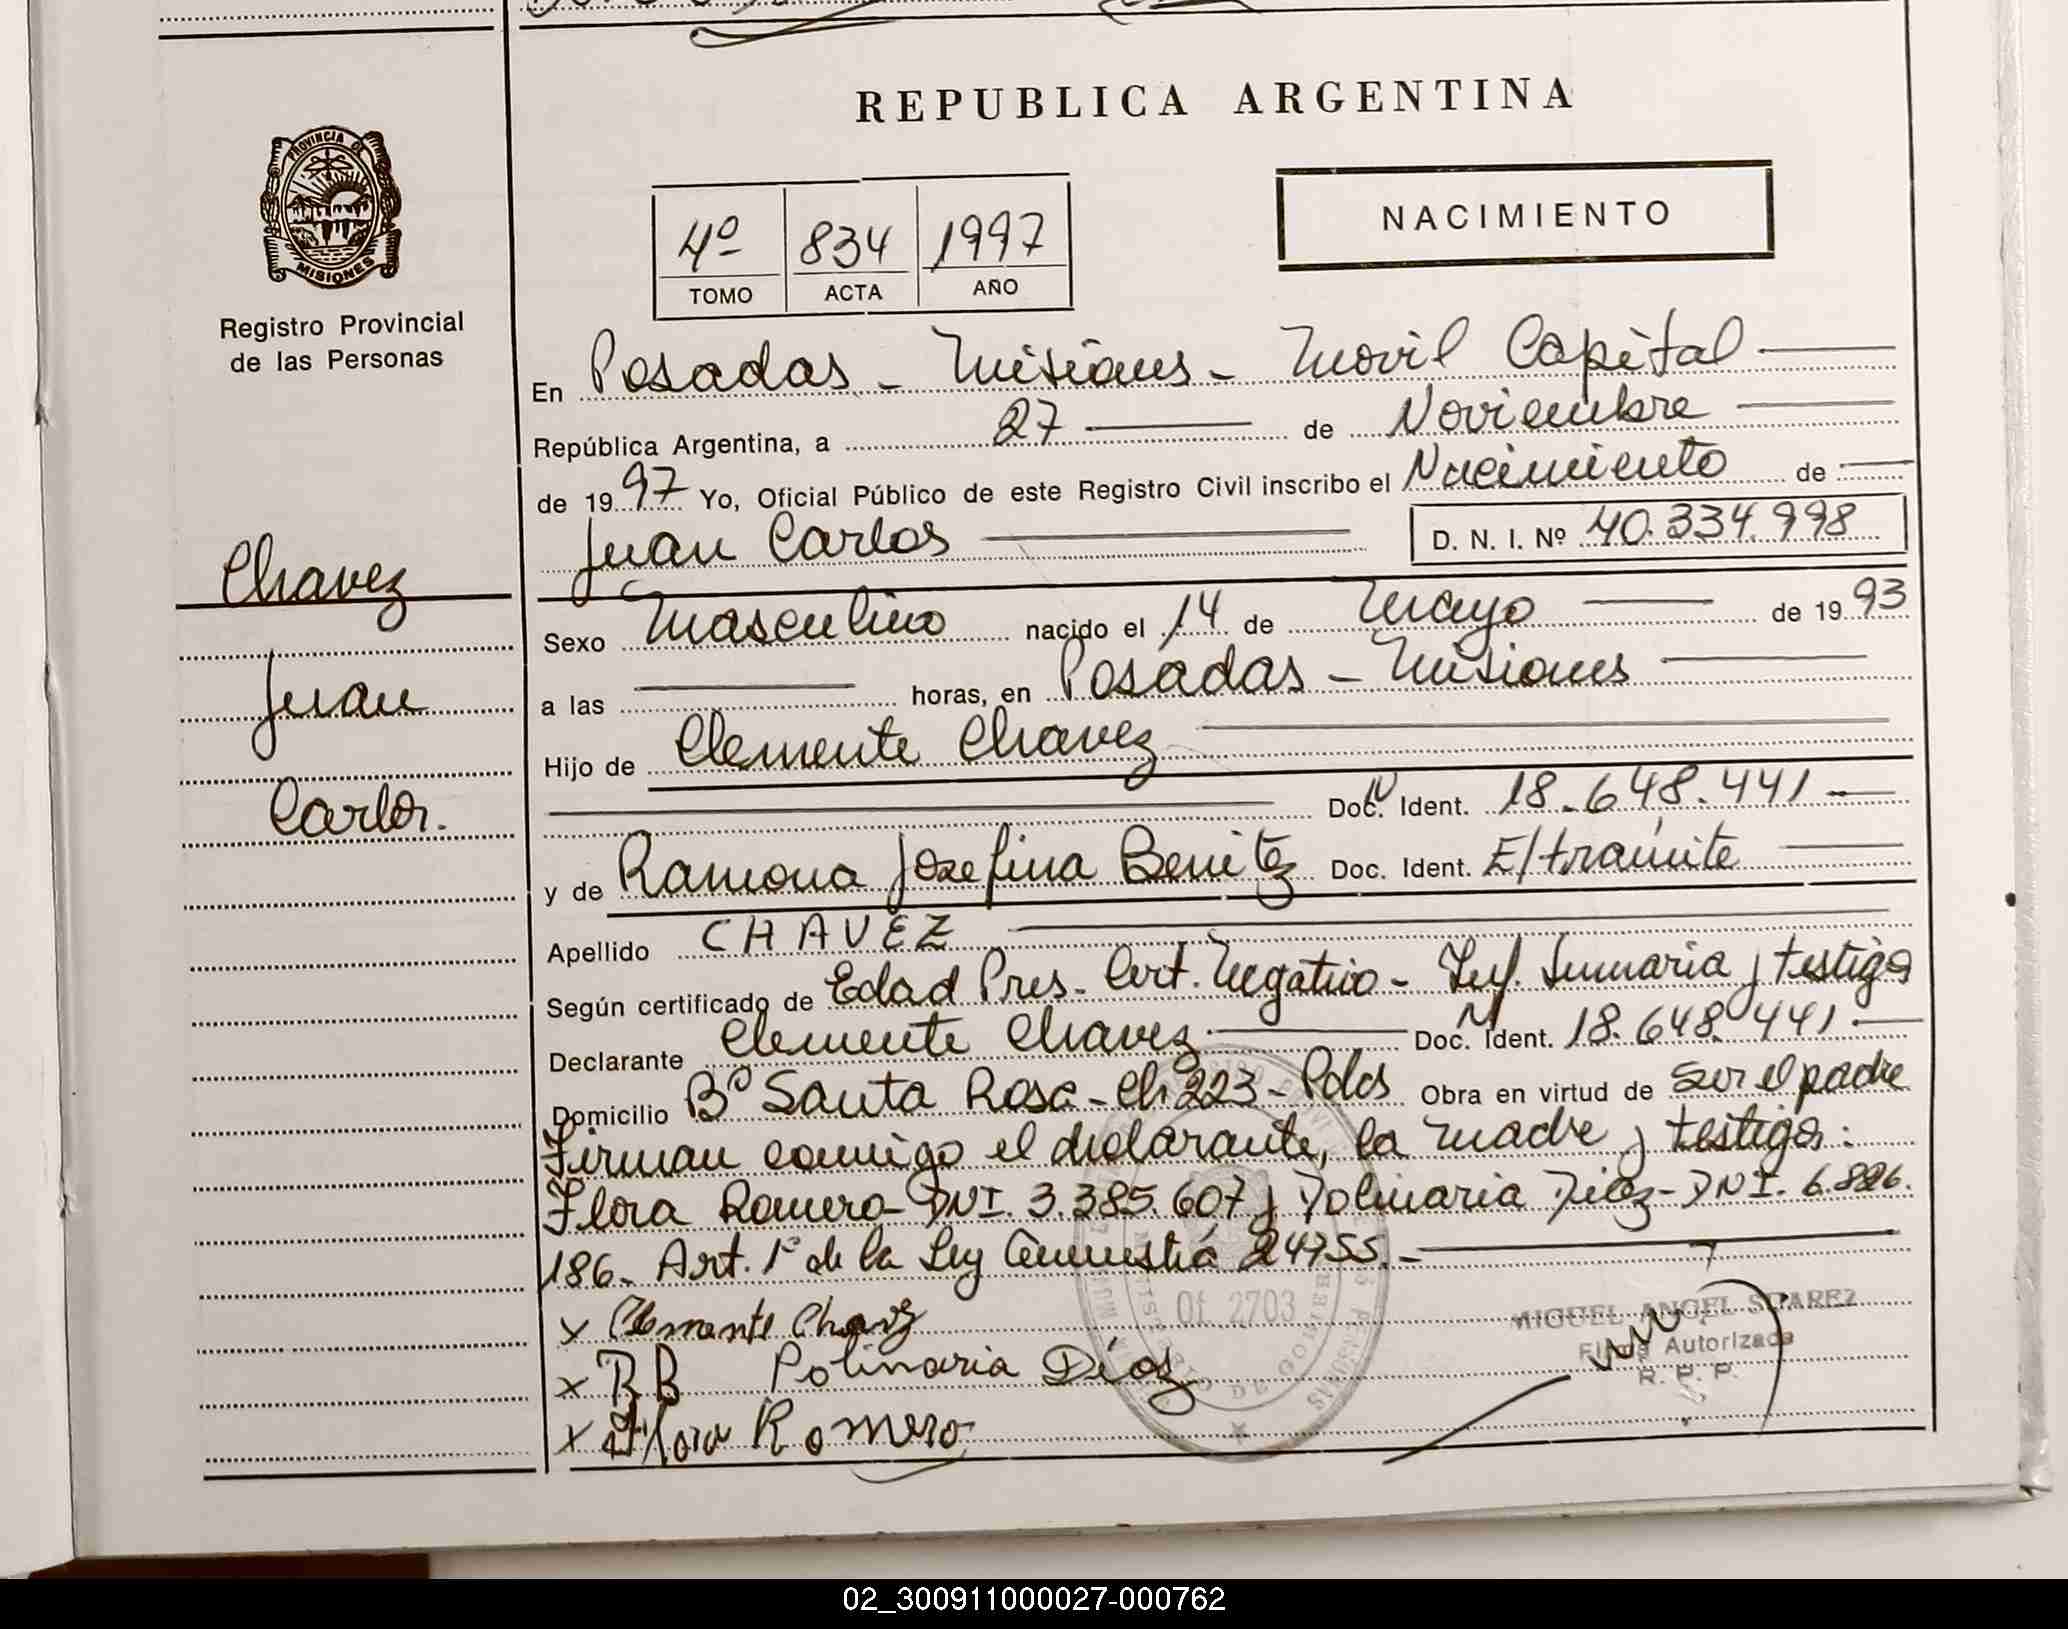 REPUBLICA ARGENTINA
PROVINCIA DE
MISIONES
Registro Provincial
de las Personas
4º 834 1997
TOMO ACTA AÑO
NACIMIENTO
En Posadas - Misiones - Movil Capital
República Argentina, a 27 de Noviembre
de 1997 Yo, Oficial Público de este Registro Civil inscribo el Nacimiento de
Juan Carlos D. N. I. Nº 40.334.998
Chavez
Juan
Carlos.
Sexo Masculino nacido el 14 de Mayo de 1993
a las horas, en Posadas - Misiones
Hijo de Clemente Chavez
Doc. Ident. 18.648.441
y de Ramona Josefina Benitez Doc. Ident. E/trámite
Apellido CHAVEZ
Según certificado de Edad Pres. Cert. Negativo - Inf. Sumaria y testigo
Declarante Clemente Chavez Doc. Ident. 18.648.441
Domicilio Bº Santa Rosa - Ch 223 - Pdas Obra en virtud de ser el padre
Firman conmigo el declarante, la madre y testigos:
Flora Romero - DNI. 3.385.607 y Polinaria Diaz - DNI. 6.826.
186. Art. 1º de la Ley Amnistía 24755.-
x Clemente Chavez
x RB Polinaria Díaz
x Flora Romero
Of. 2703
MIGUEL ANGEL SUAREZ
Firma Autorizada
R. P. P.
02_300911000027-000762